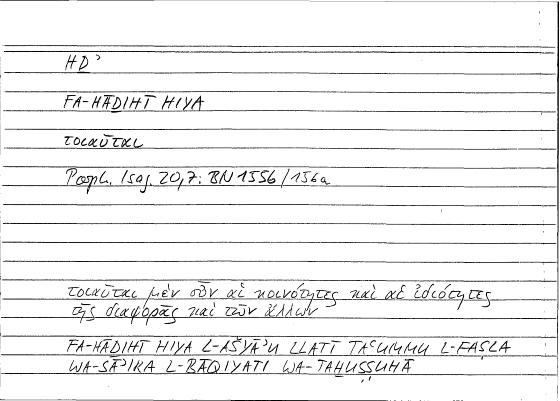 HḎʾ
FA-HĀḎIHĪ HIYA
τοιαῦται
Porph. Isag. 20,7: BN 1556/156a
τοιαῦται μὲν οὖν αἱ κοινότητες καὶ αἱ ἰδιότητες
τῆς διαφορᾶς καὶ τῶν ἄλλων
FA-HĀḎIHĪ HIYA L-AŠYĀʾU LLATĪ TAʿUMMU L-FAṢLA
WA-SĀʾIKA L-BĀQIYATI WA-TAḪUṢṢUHĀ